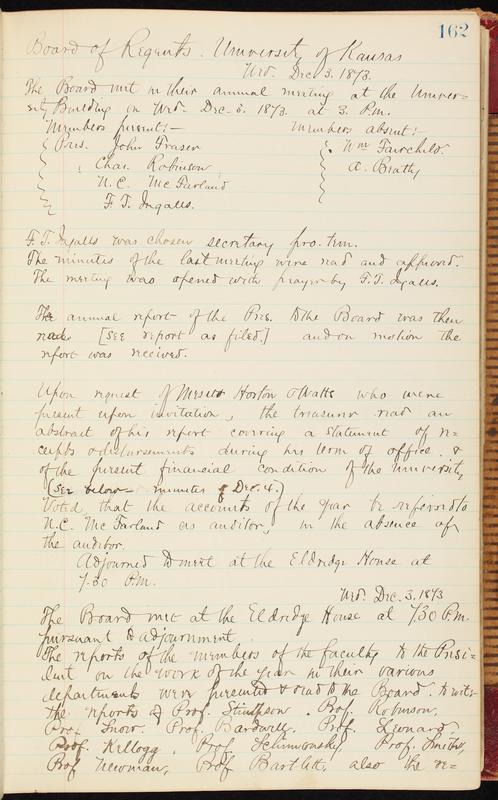 162
Board of Regents. University of Kansas
Wed. Dec. 3. 1873.
The Board met in their annual meeting at the Univer=
sity Building on Wed. Dec. 3. 1873. at 3. P.m.
Members present:— Members absent:
Pres. John Fraser Wm Fairchild.
Chas. Robinson A. Beatty
N.C. McFarland
F.T. Ingalls.
F.T. Ingalls was chosen secretary pro. tem.
The minutes of the last meeting were read and approved.
The meeting was opened with prayer by F.T. Ingalls.
The annual report of the Pres. to the Board was then
read [see report as filed.] and on motion the
report was received.
Upon request of Messrs Horton & Watts who were
present upon invitation, the treasurer read an
abstract of his report covering a statement of re=
ceipts & disbursements during his term of office. &
of the present financial condition of the University
(see below — minutes of Dec. 4.)
Voted, that the accounts of the year be referred to
N.C. McFarland as auditor, in the absence of
the auditor.
Adjourned to meet at the Eldridge House at
7.30 P.m.
Wed. Dec. 3, 1873
The Board met at the Eldridge House at 7.30 P.m.
pursuant to adjournment.
The reports of the members of the faculty to the Presi=
dent on the work of the year in their various
departments were presented & read to the Board. to wit:
the reports of Prof. Stimpson. Prof. Robinson,
Prof. Snow. Prof. Bardwell. Prof. Leonard.
Prof. Kellogg. Prof. Prof. Smith,
Prof Newman, Prof Bartlett, also the re=